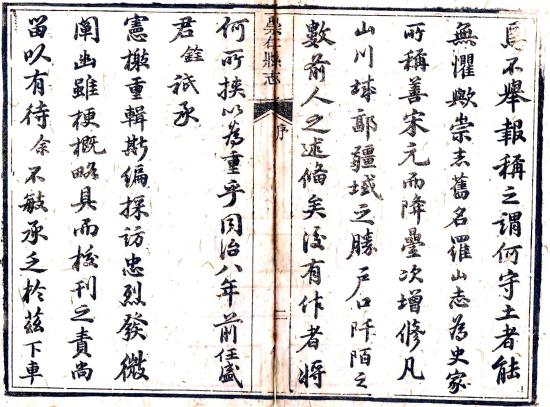 焉不舉報稱之謂何守土者能
無懼歟崇志舊名羅山志為史家
所稱善宋元而降曡次增修凡
山川城鄗疆域之勝戶口阡陌之
數前人之述備矣後有作者將
崇仁縣志
序
二
何所挾以為重乎同治八年前任盛
君銓祇承
憲檄重輯斯編採訪忠烈發微
闡幽雖梗概略具而校刊之責尚
留以有待余不敏承乏於茲下車